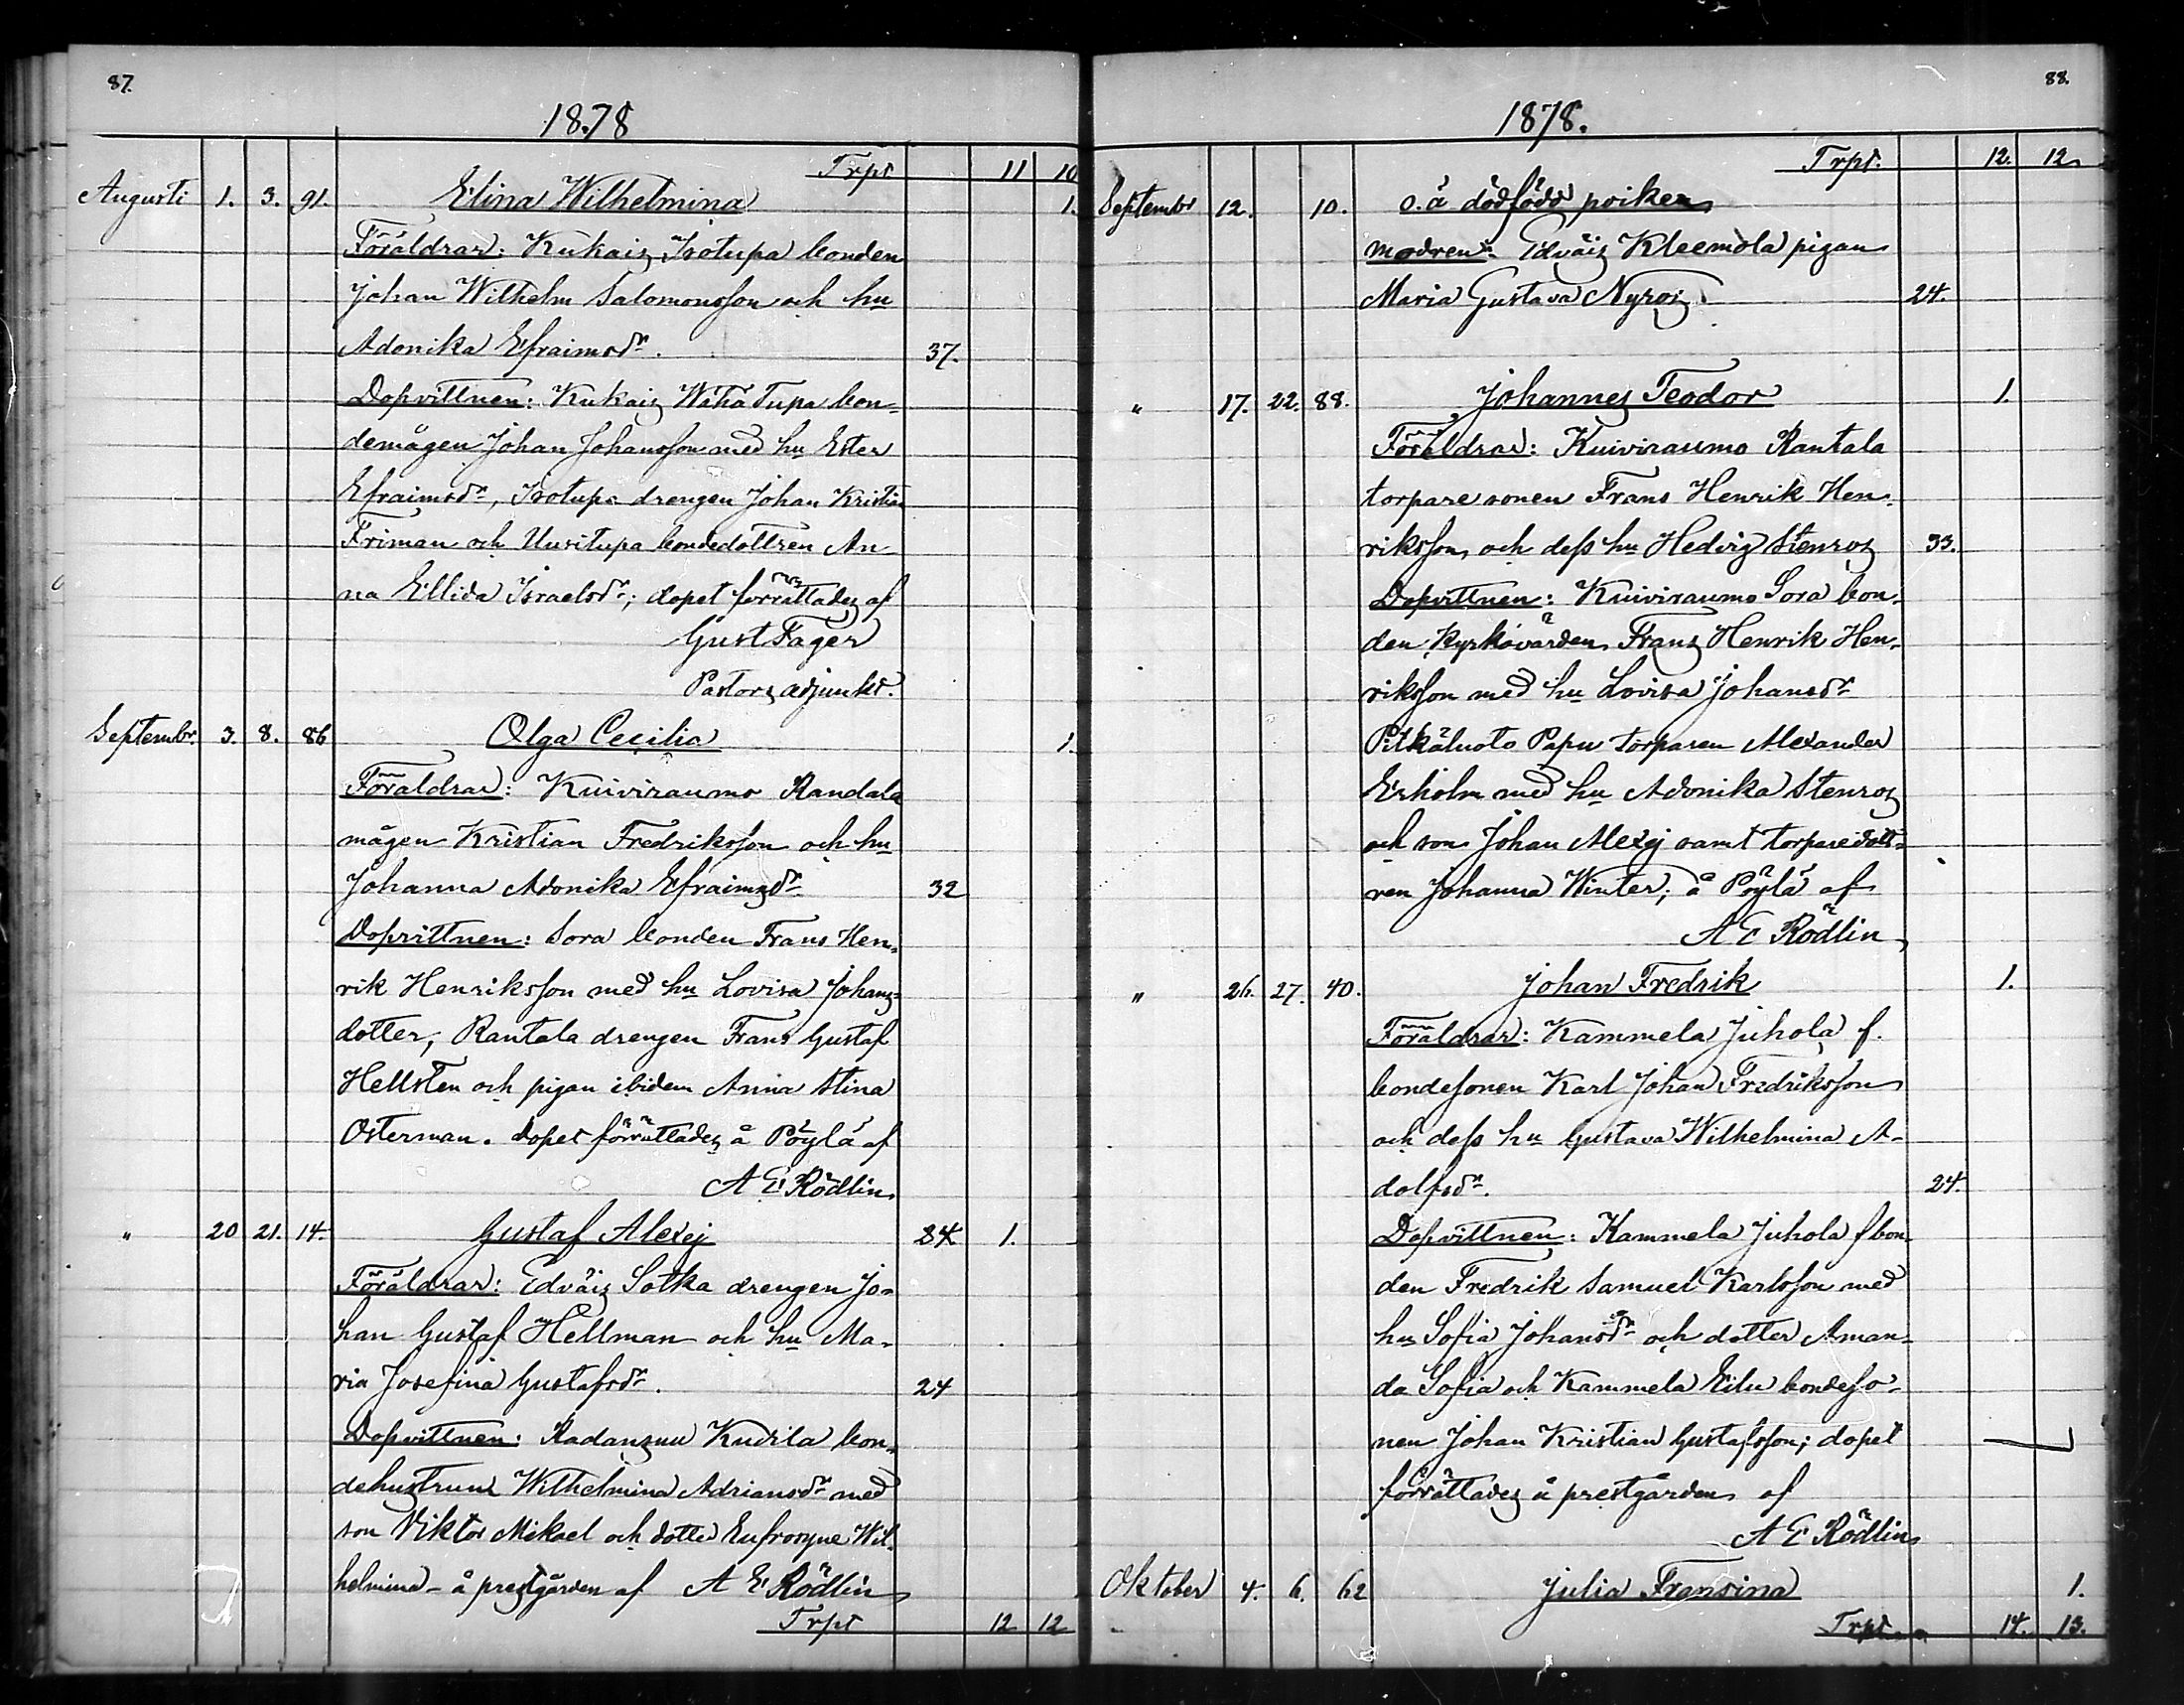 87.
1878
Trpt 11 10
Augusti 1. 3. 91. Elina Wilhelmina 1.
Föräldrar: Kukais Isotupa bonden
Johan Wilhelm Salomonsson och hu
Adonika Efraimsdr. 37.
Dopvittnen: Kukais Wähä Tupa bon-
demågen Johan Johansson med hu Ester
Efraimsdr, Isotupa drengen Johan Kristian
Friman och Uusitupa bondedottren An-
na Ellida Israelsdr; dopet förrättades af
Gust Fager
Pastors adjunkt.
Septembr. 3. 8. 86 Olga Cecilia 1.
Föräldrar: Kuiviraumo Randala
mågen Kristian Fredriksson och hu
Johanna Adonika Efraimsdr 32
Dopvittnen: Sora bonden Frans Hen-
rik Henriksson med hu Lovisa Johans-
dotter, Rantala drengen Frans Gustaf
Hellsten och pigan ibidem Anna Stina
Osterman. dopet förrättades å Pöylä af
A E Rödlin
" 20 21. 14. Gustaf Alexej 84 1.
Föräldrar: Edväis Sotka drengen Jo-
han Gustaf Hellman och hu Ma-
ria Josefina Gustafsdr. 24
Dopvittnen: Radansuu Kudila bon-
dehustrun Wilhelmina Adriansdr med
son Viktor Mikael och dotter Eufrosyne Wil-
helmina - å prestgården af A E Rödlin
Trpt 12 12
88.
1878.
Trpt. 12. 12
Septembr 12. 10. o.ä dödfödd poiken
modren: Edväis Kleemola pigan
Maria Gustava Nyros. 24.
" 17. 22. 88. Johannes Teodor 1.
Föräldrar: Kuiviraumo Rantala
torpare sonen Frans Henrik Hen-
riksson och dess hu Hedvig Stenros 33.
Dopvittnen: Kuiviraumo Sora bon-
den Kyrkovärden Frans Henrik Hen-
riksson med hu Lovisa Johansdr
Pitkäluoto Papu torparen Alexander
Erholm med hu Adonika Stenros
och son Johan Alexej samt torparedott-
ren Johanna Winter; å Pöylä af
A E Rödlin
" 26. 27. 40. Johan Fredrik 1.
Föräldrar: Kammela Juhola f.
bondesonen Karl Johan Fredriksson
och dess hu Gustava Wilhelmina A-
dolfsdr. 24.
Dopvittnen: Kammela Juhola f bon-
den Fredrik Samuel Karlsson med
hu Sofia Johansdr och dotter Aman-
da Sofia och Kammela Eilu bondeso-
nen Johan Kristian Gustafsson; dopet
förrättades å prestgården af
A E Rödlin
Oktober 4. 6. 62 Julia Fransina 1.
Trpt 14. 13.